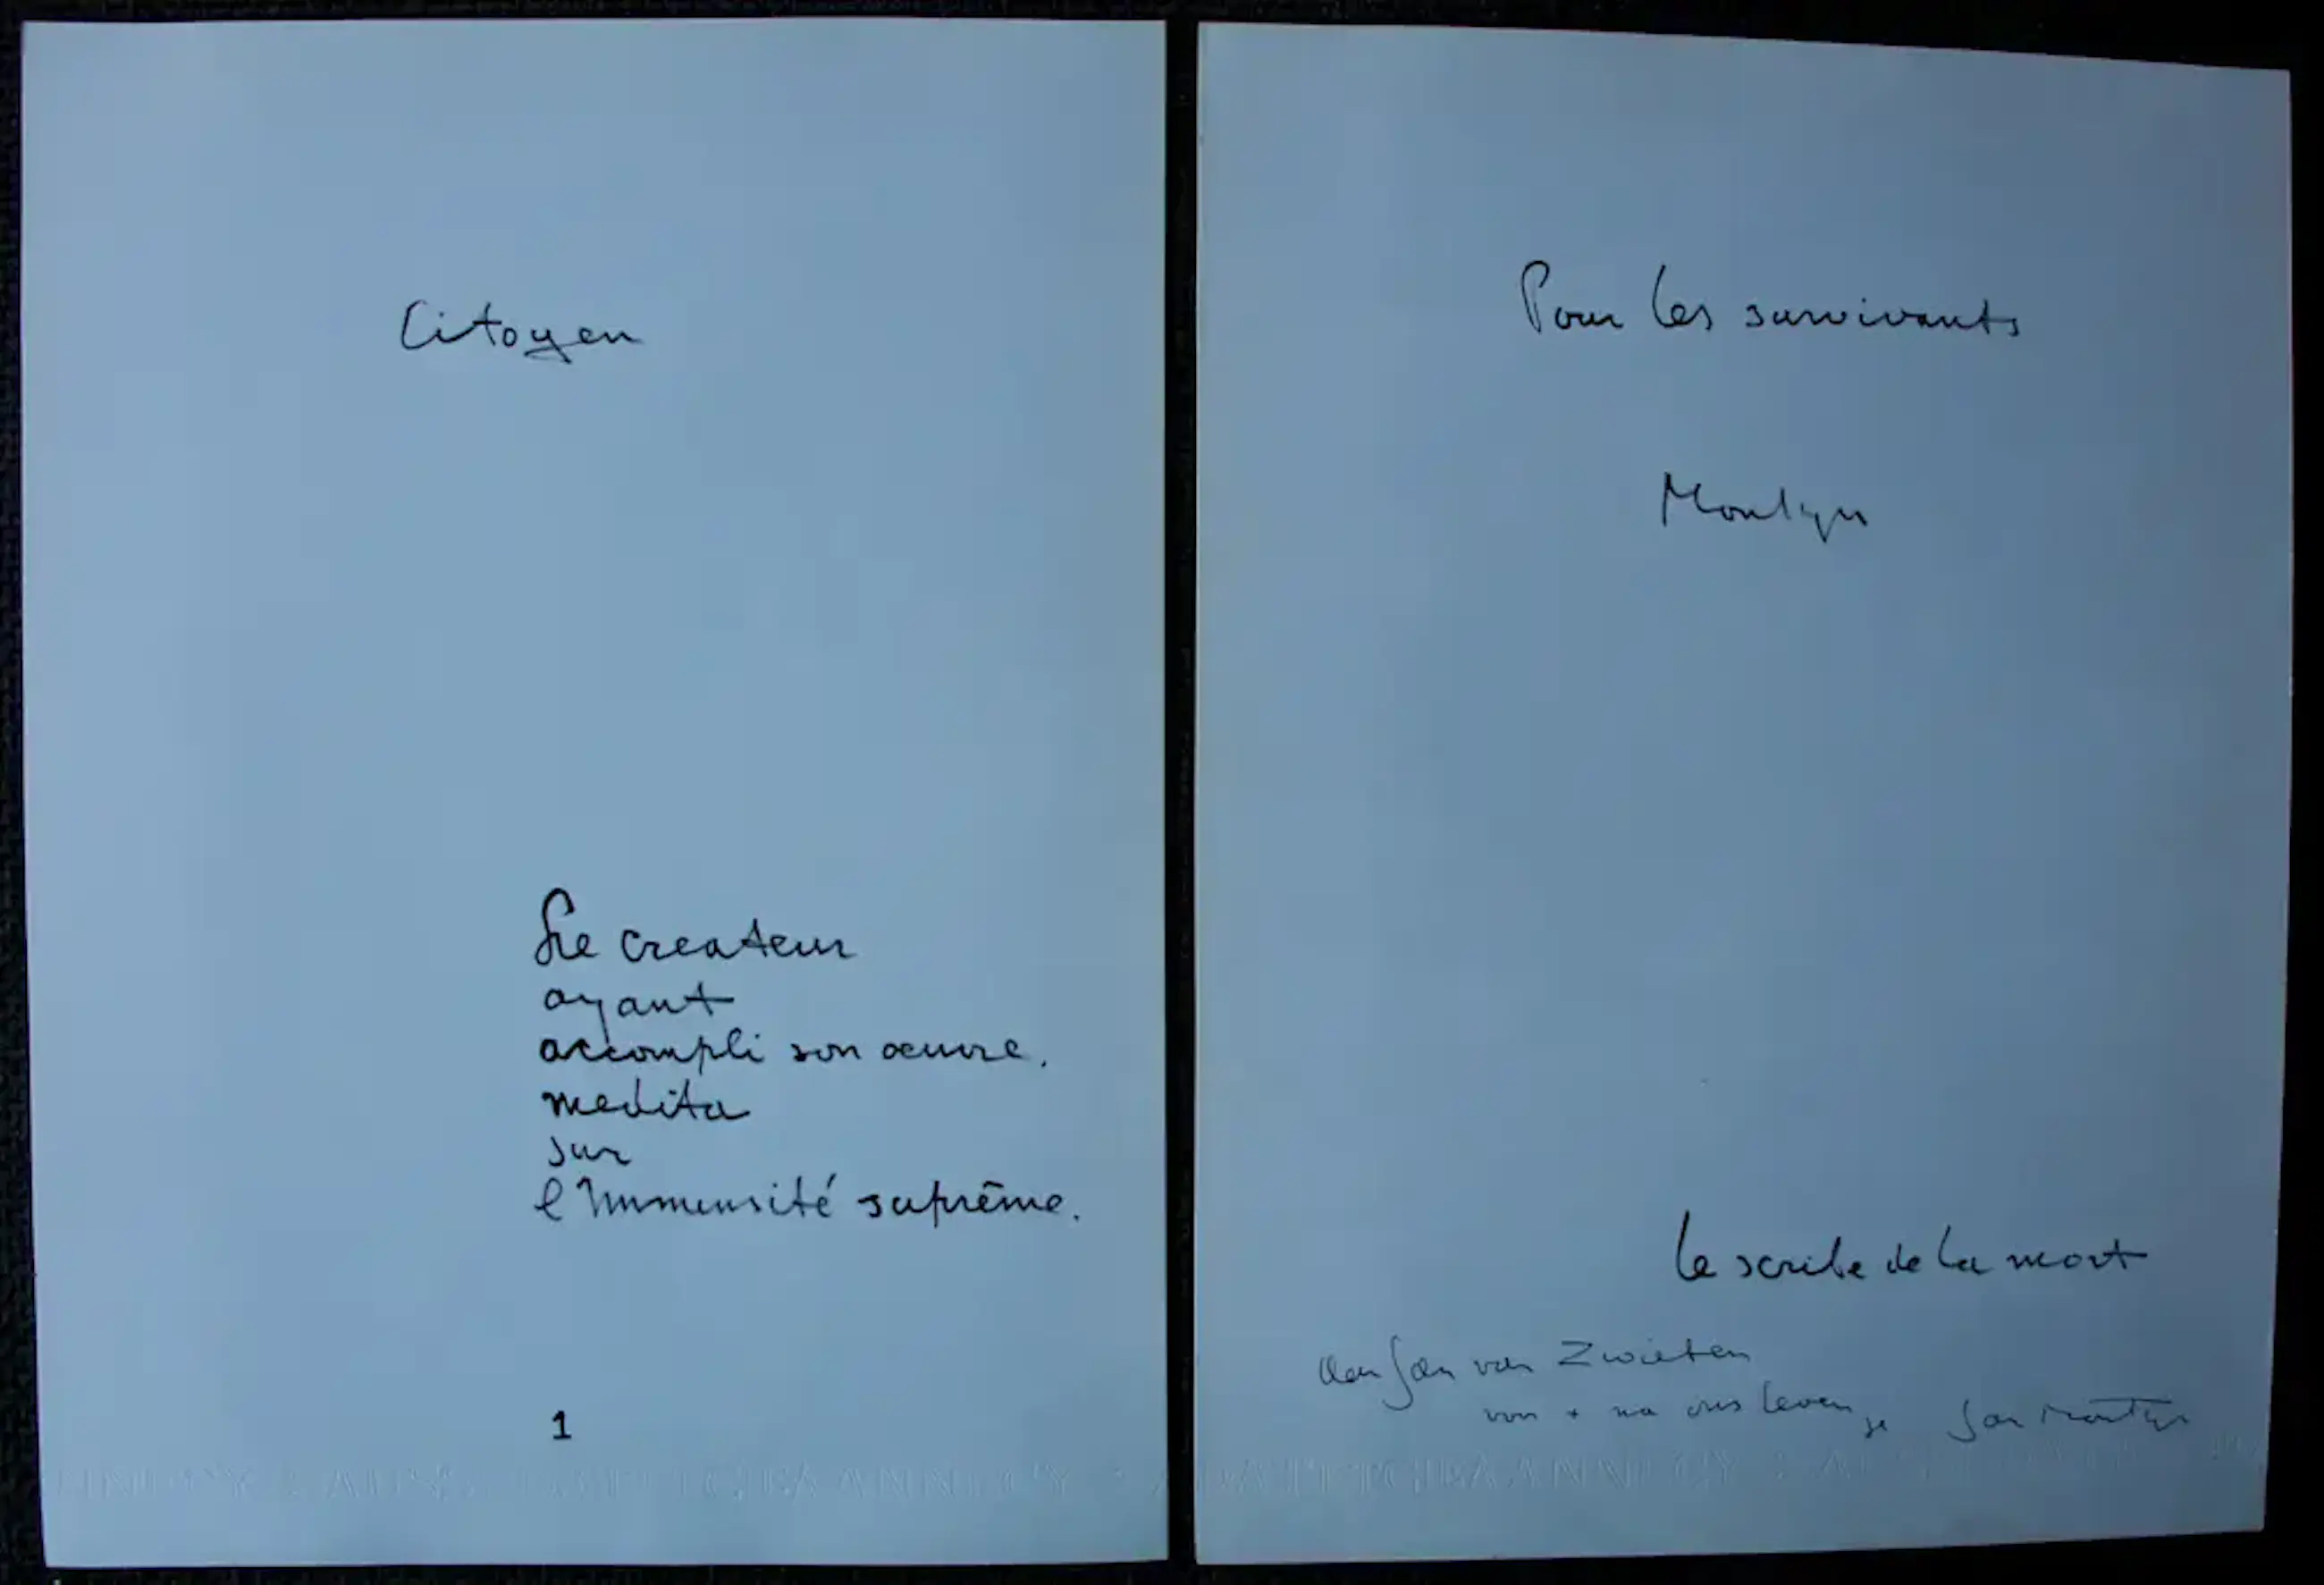 Citoyen
Le createur
ayant
accompli son œuvre.
medita
sur
l'Immensité suprême.
1
Pour les survivants
Montyn
le scribe de la mort
aan Jan van Zwieten
voor + na ons leven
Jan Montyn